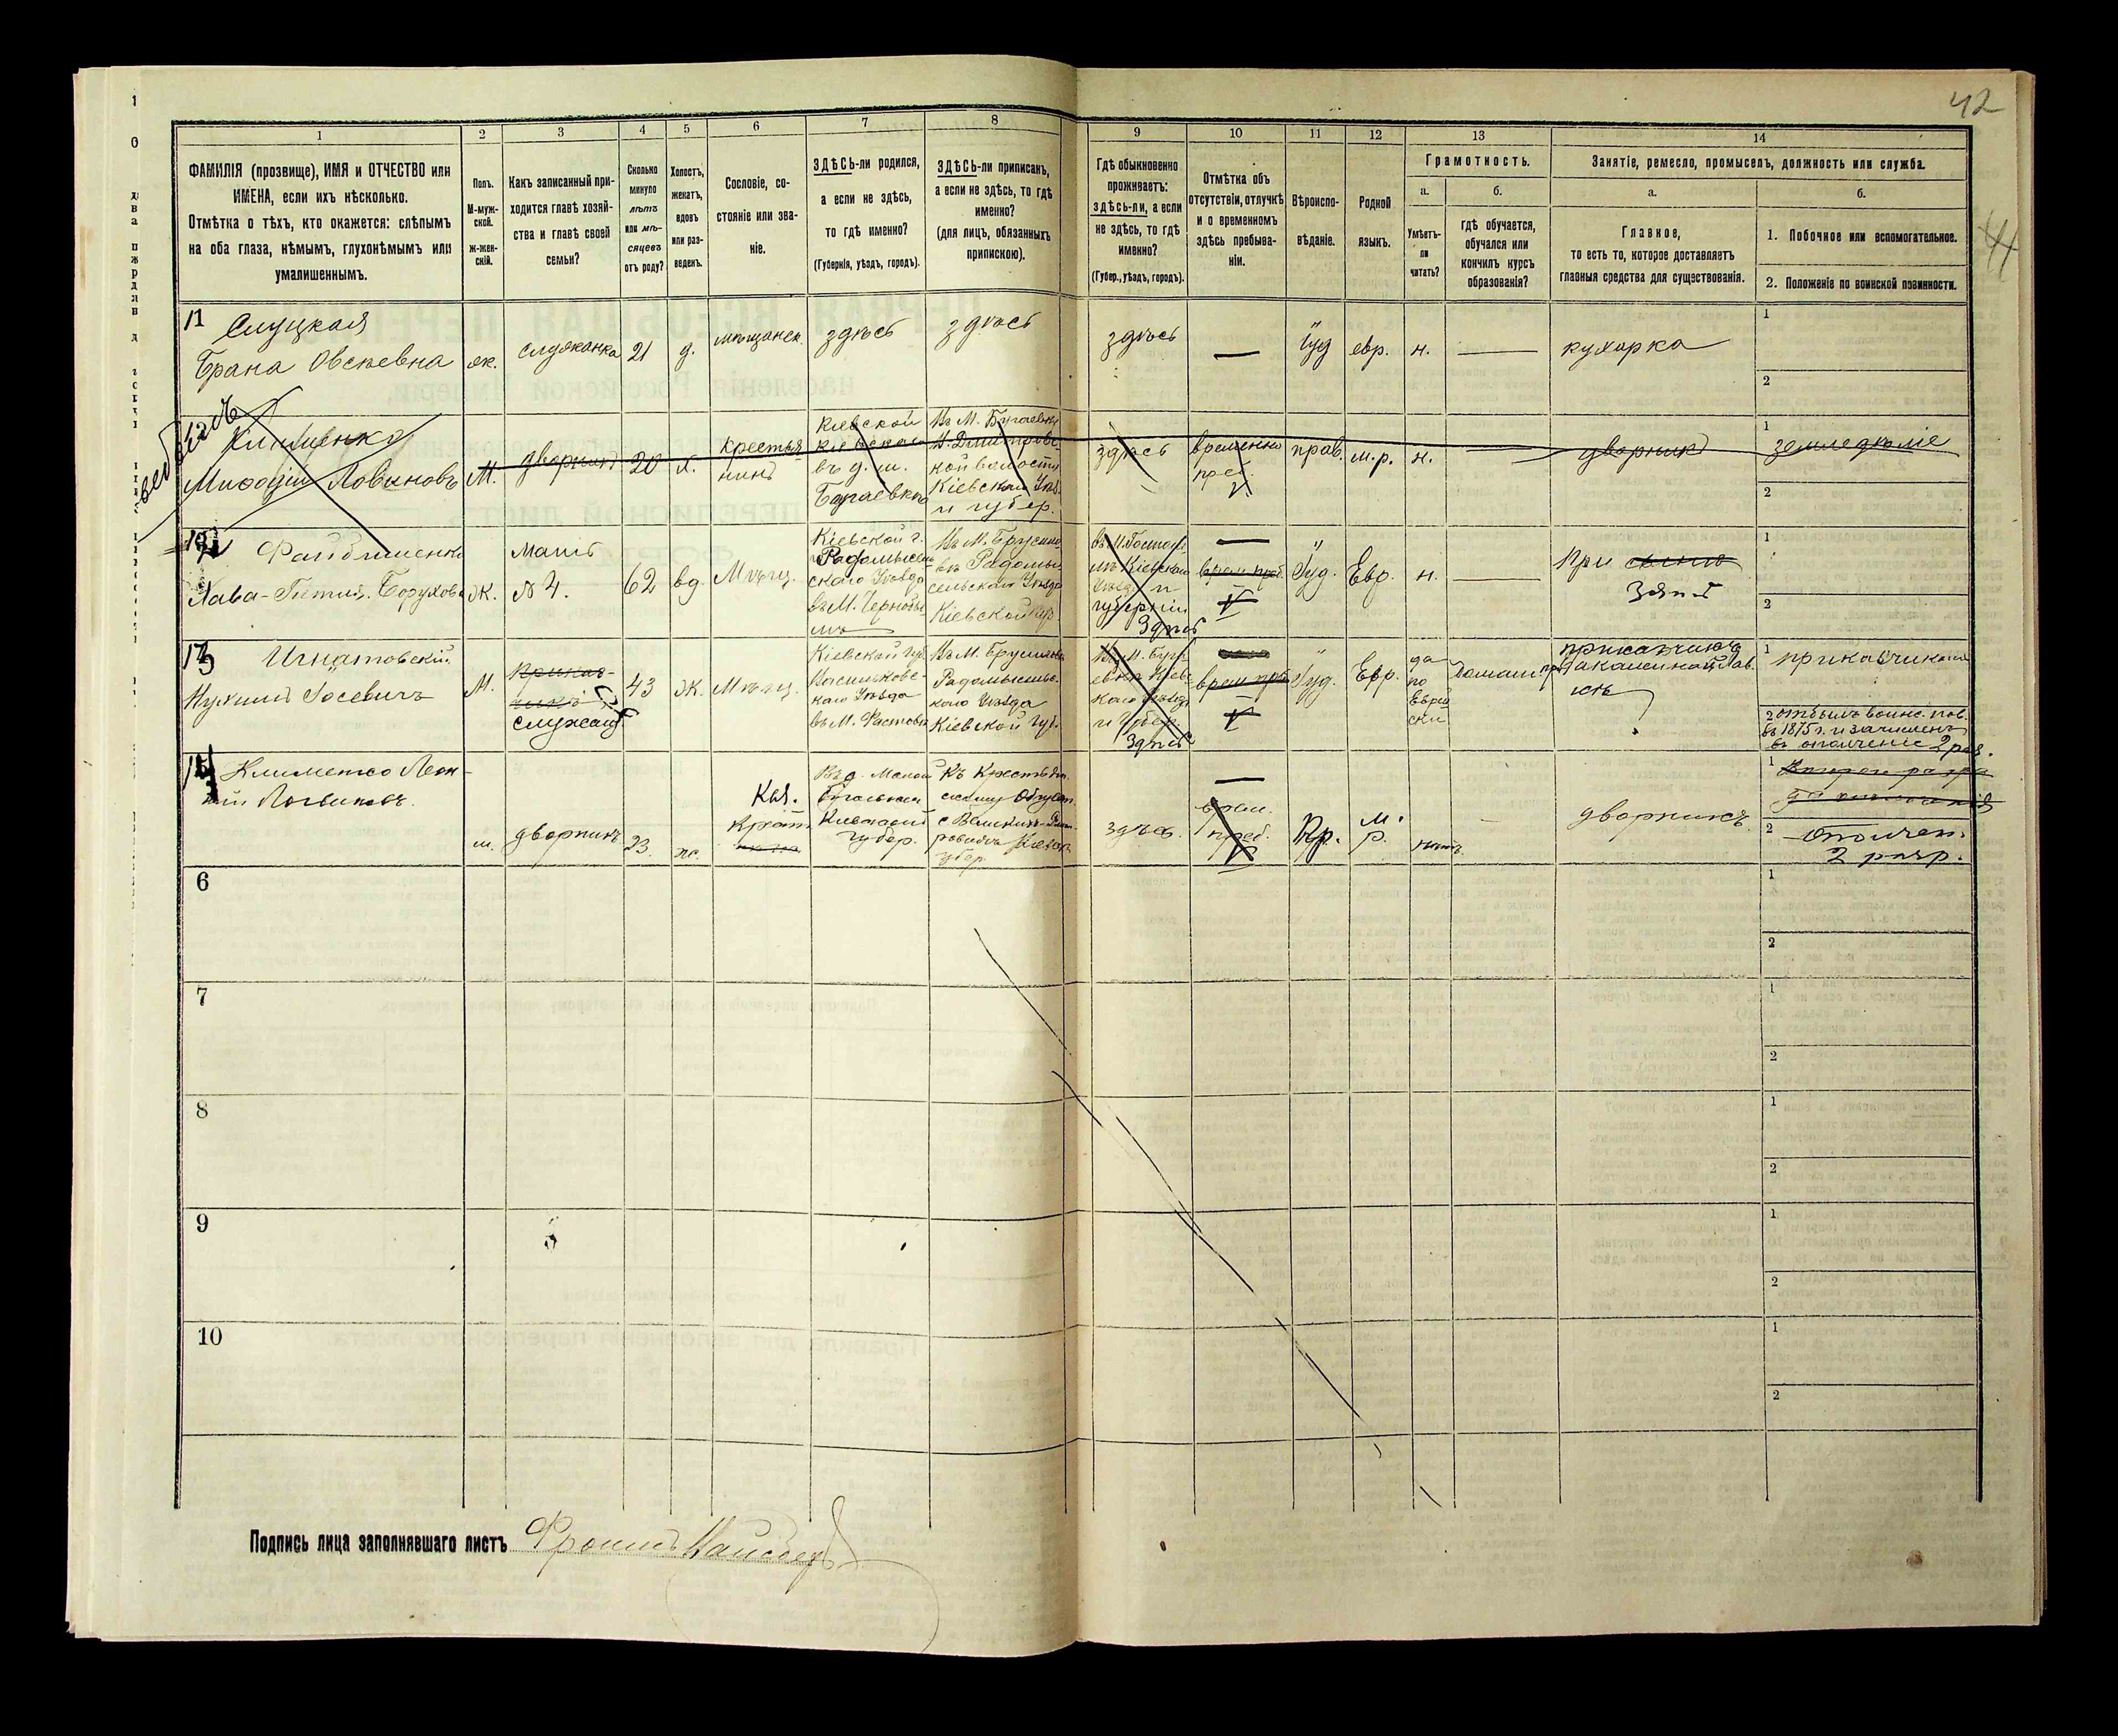 42
44
1
2
3
4
5
6
7
8
9
10
11
12
13
14
ФАМИЛІЯ (прозвище), ИМЯ и ОТЧЕСТВО или
ИМЕНА, если ихъ нѣсколько.
Отмѣтка о тѣхъ, кто окажется: слѣпымъ
на оба глаза, нѣмымъ, глухонѣмымъ или
умалишеннымъ.
Полъ.
М-муж-
ской.
Ж-жен-
скій.
Какъ записанный при-
ходится главѣ хозяй-
ства и главѣ своей
семьи?
Сколько
минуло
лѣтъ
или мѣ-
сяцевъ
отъ роду?
Холостъ,
женатъ,
вдовъ
или раз-
веденъ.
Сословіе, со-
стояніе или зва-
ніе.
ЗДѢСЬ-ли родился,
а если не здѣсь,
то гдѣ именно?
(Губернія, уѣздъ, городъ).
ЗДѢСЬ-ли приписанъ,
а если не здѣсь, то гдѣ
именно?
(для лицъ, обязанныхъ
припискою).
Гдѣ обыкновенно
проживаетъ:
здѣсь-ли, а если
не здѣсь, то гдѣ
именно?
(Губер., уѣздъ, городъ).
Отмѣтка объ
отсутствіи, отлучкѣ
и о временномъ
здѣсь пребыва-
ніи.
Вѣроиспо-
вѣданіе.
Родной
языкъ.
Грамотность.
а.
б.
Умѣетъ-
ли
читать?
гдѣ обучается,
обучался или
кончилъ курсъ
образованія?
Занятіе, ремесло, промыселъ, должность или служба.
а.
б.
Главное,
то есть то, которое доставляетъ
главныя средства для существованія.
1. Побочное или вспомогательное.
2. Положеніе по воинской повинности.
11 Слуцкая
Брана Овсѣевна
ж.
служанка
21
д.
мѣщанск.
здѣсь
здѣсь
здѣсь
—
Іуд
евр.
н.
—
кухарка
1
2
выбылъ
Клименко
Мифодій Логвиновъ
М.
дворникъ
20
х.
крестья
нинъ
Кіевской
кіевскаго
въ д. м.
Бугаевка
Въ М. Бугаевку
Дмитров-
кой волости
Кіевскаго Уѣз.
и губер.
здѣсь
временно
преб.
прав.
м.р.
н.
—
дворникъ
1 земледѣліе
2
12 Файбишенко
Хава-Гитля Борухов
Ж.
мать
№ 4.
62
вд.
Мѣщ.
Кіевской г.
Радомысль-
скаго Уѣзда
въ М. Чернобы-
лѣ
Радомы-
сельскаго Уѣзда
Кіевской губ.
Кіевскаго
Уѣзда и
губерніи
Здѣсь
—
врем. преб.
Іуд.
Евр.
н.
—
При
Зятѣ
1
2
13 Игнатовскій
Нухимъ Іосевичъ
М.
Приказ-
чикъ
служащ.
43
Ж.
Мѣщ.
Кіевской губ.
Васильковс-
каго Уѣзда
въ М. Фастовѣ
Въ М. Брусиловѣ
Радомысльс-
каго Уѣзда
Кіевской губ.
и Губер.
Здѣсь
врем. преб.
Іуд.
Евр.
да
по
Еврей
ски
Домашн.
приказчикъ
1 приказчикъ
2 отбылъ воинс. пов.
въ 1875 г. и зачисленъ
въ ополченіе 2 раз.
14 Клименко Леон-
тій Логвиновъ.
м.
дворникъ
23.
Крест.
Кіевской
губер.
губер.
здѣсь.
—
врем.
преб.
Пр.
м.
р.
нѣтъ.
—
дворникъ.
1
2 Ополчен.
2 разр.
6
1
2
7
1
2
8
1
2
9
1
2
10
1
2
Подпись лица заполнявшаго листъ